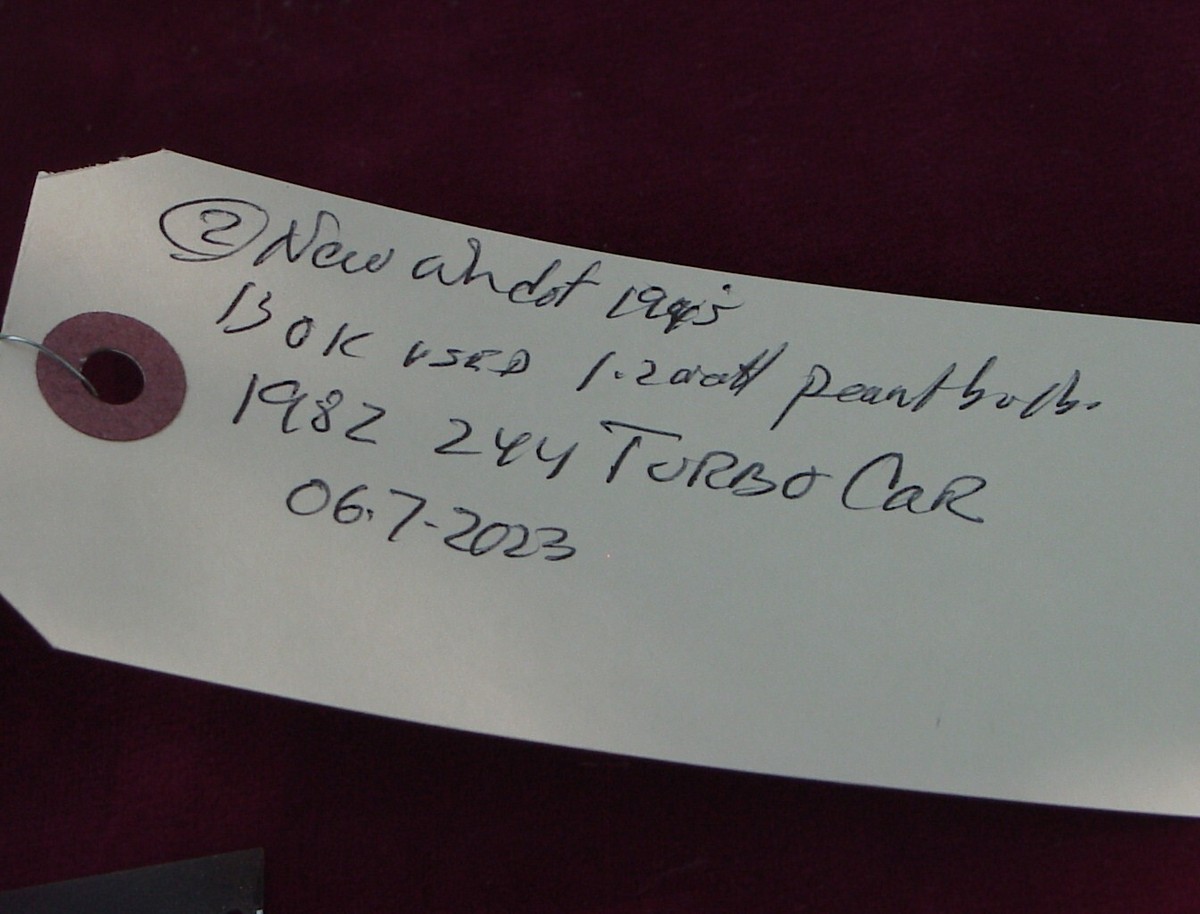 ② New and of 194's
13 OK USED 1.2 watt peanut bulbs.
1982 244 TURBO CAR
06.7-2023